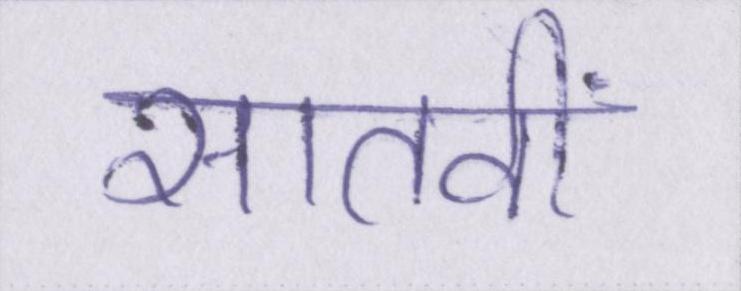 सातवीं